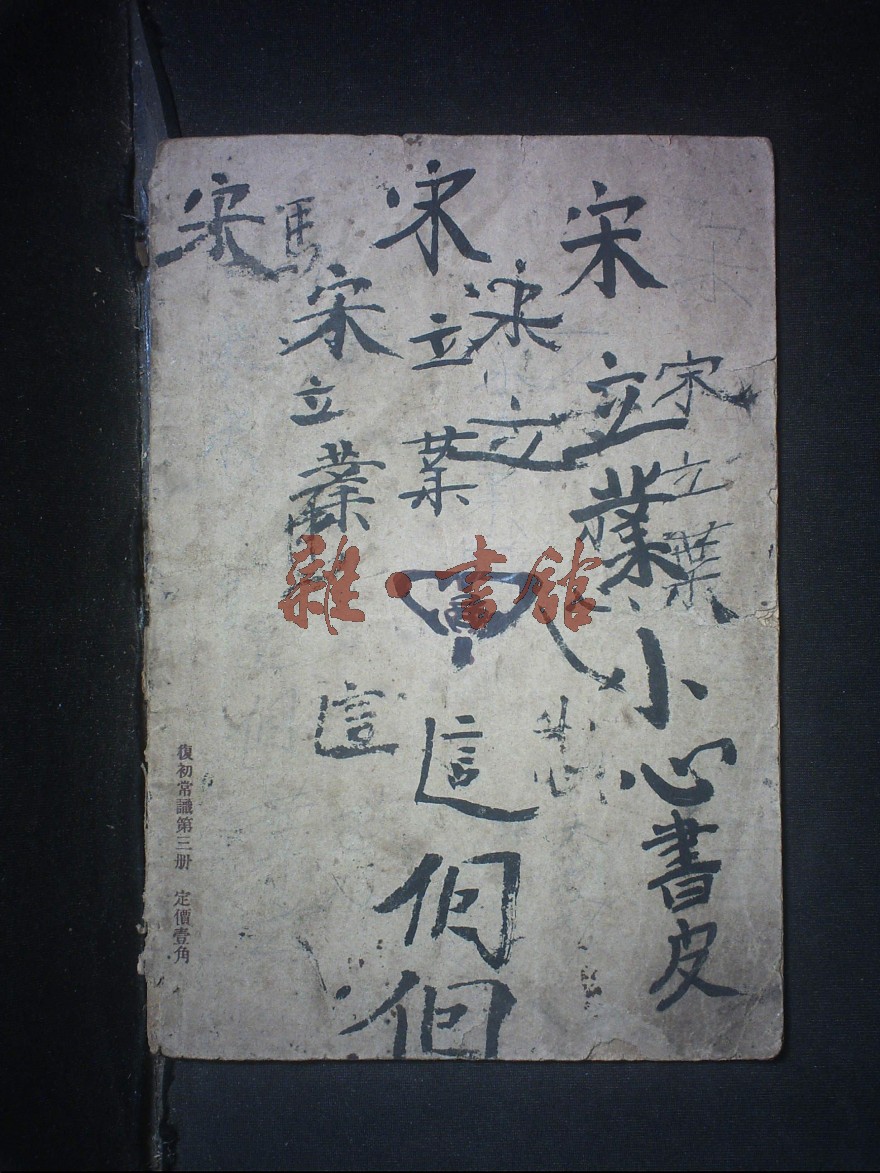 宋立業
宋立業小心書皮
宋立
宋立業
這個個
宋立業
這
馬
宋
雜·書館
復初常識第三册 定價壹角